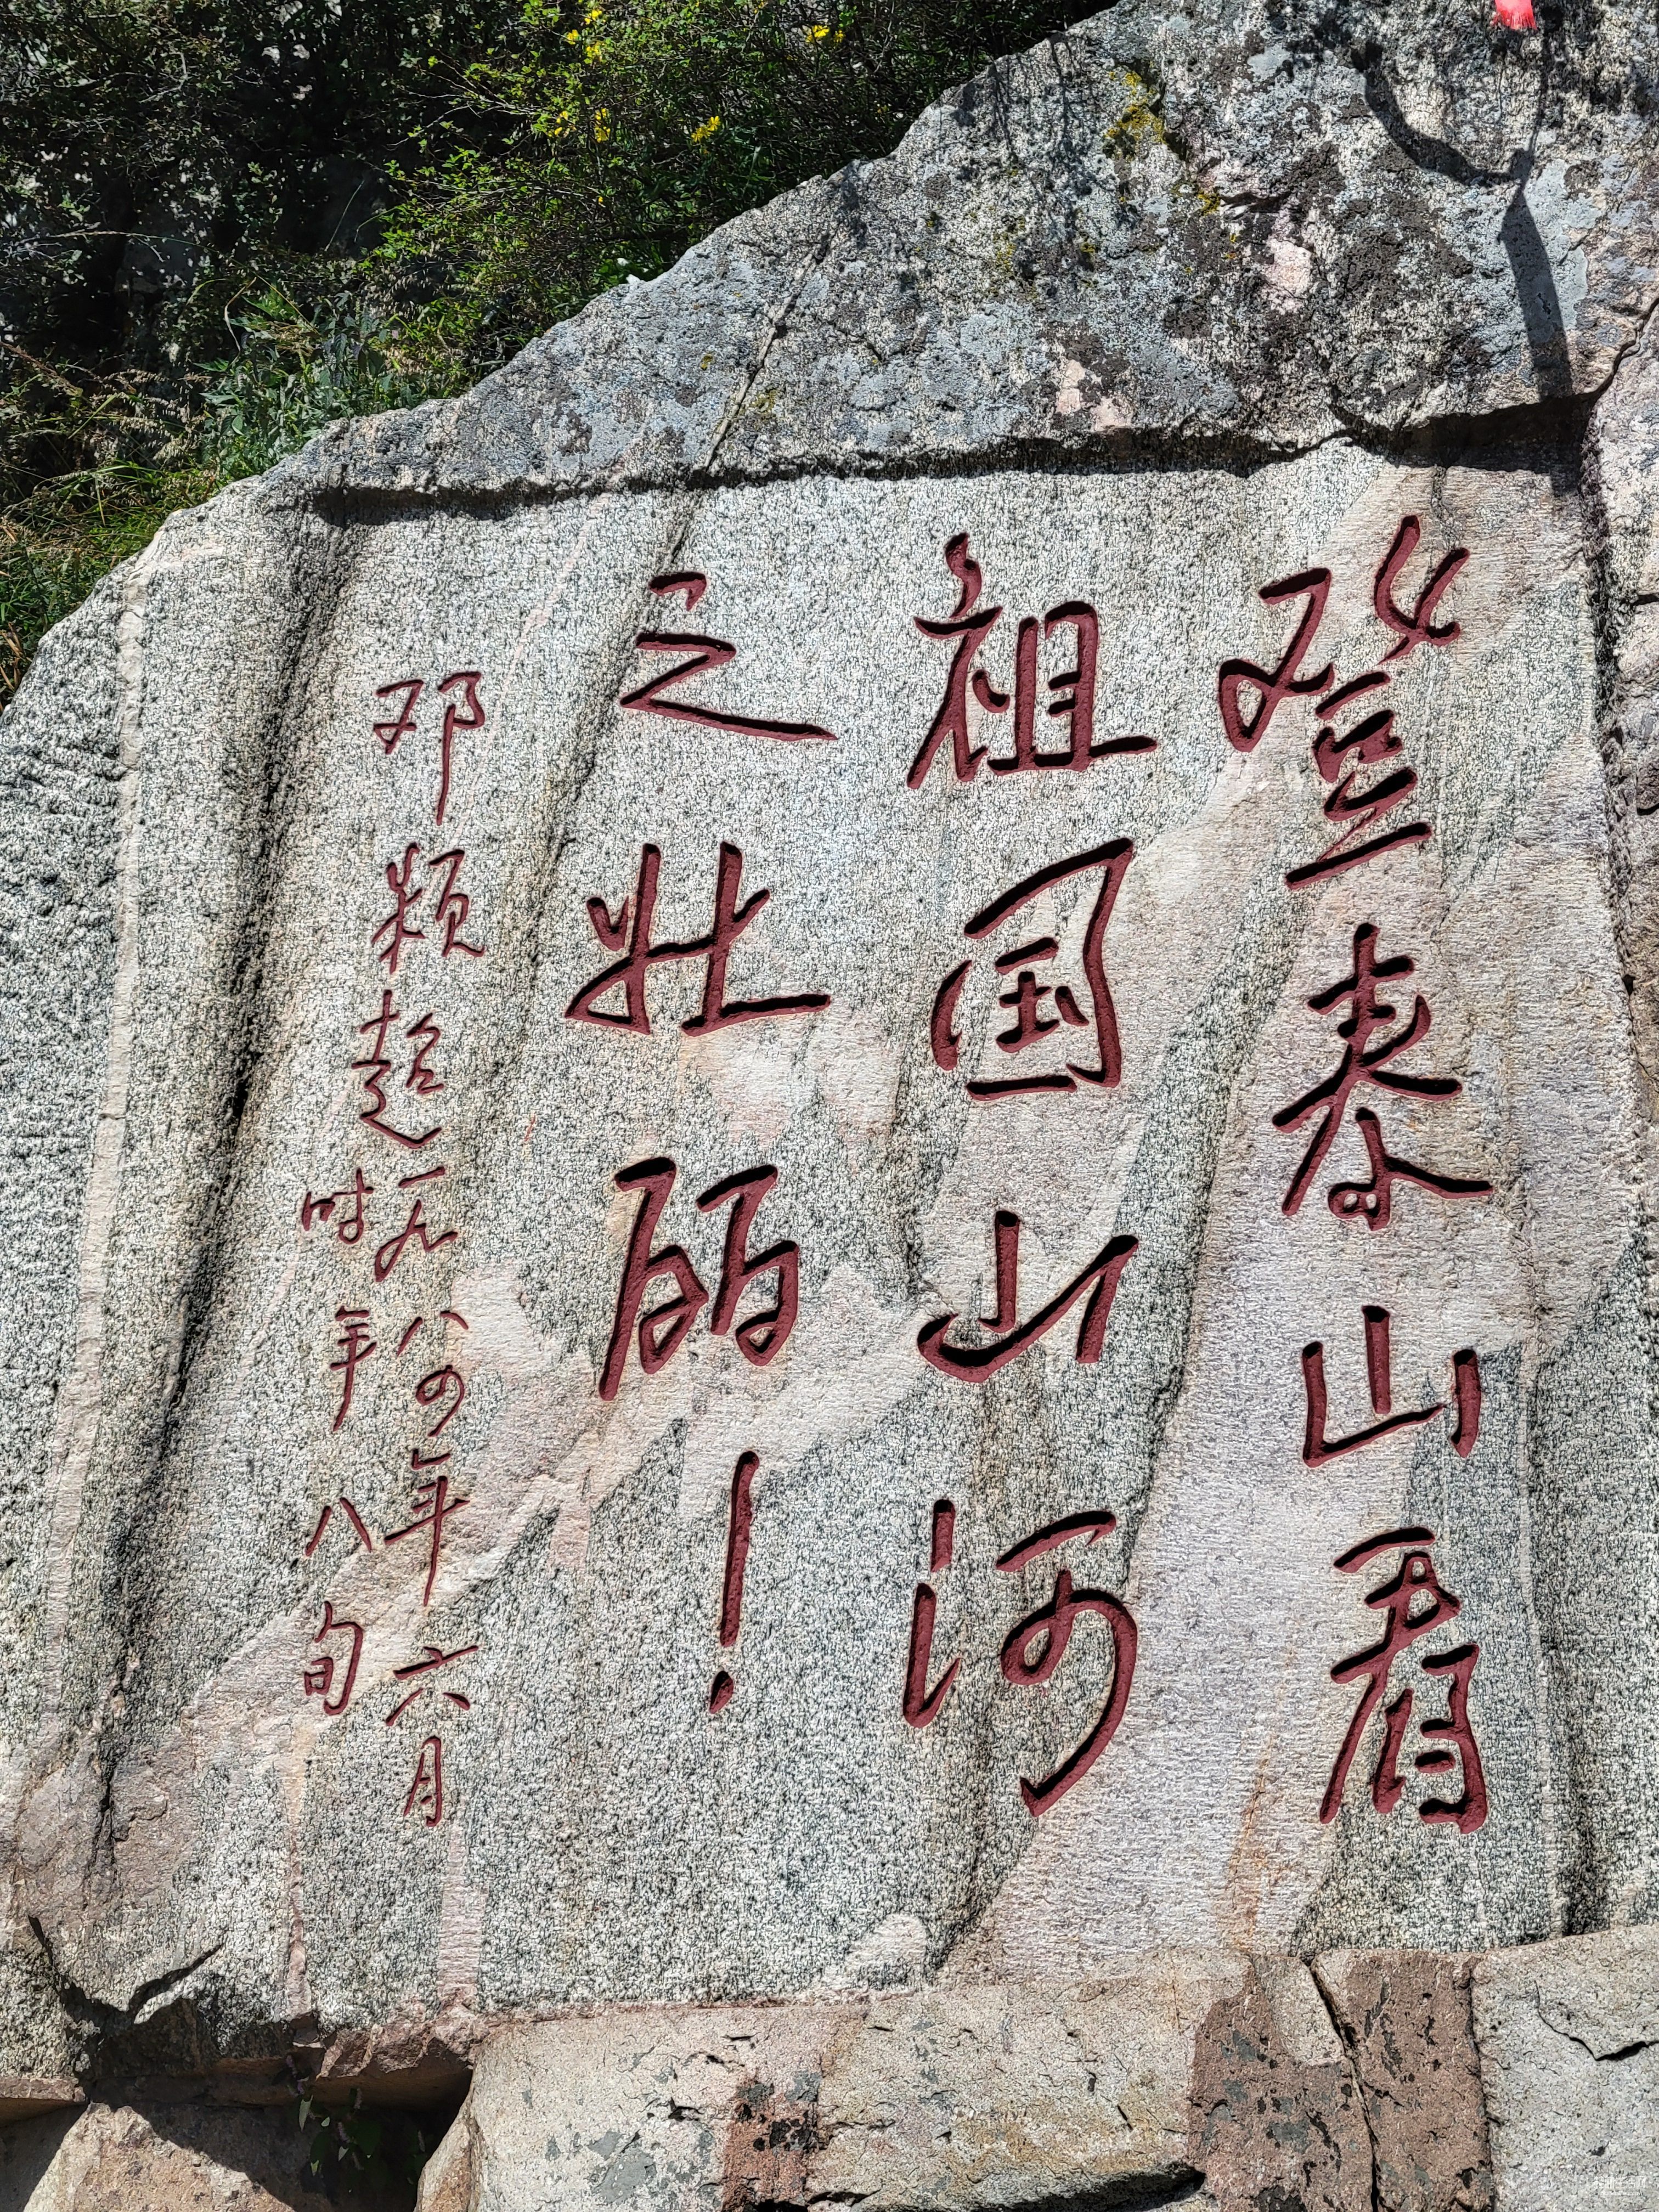 登泰山看
祖国山河
之壮丽！
邓颖超 一九八四年六月
时年八旬